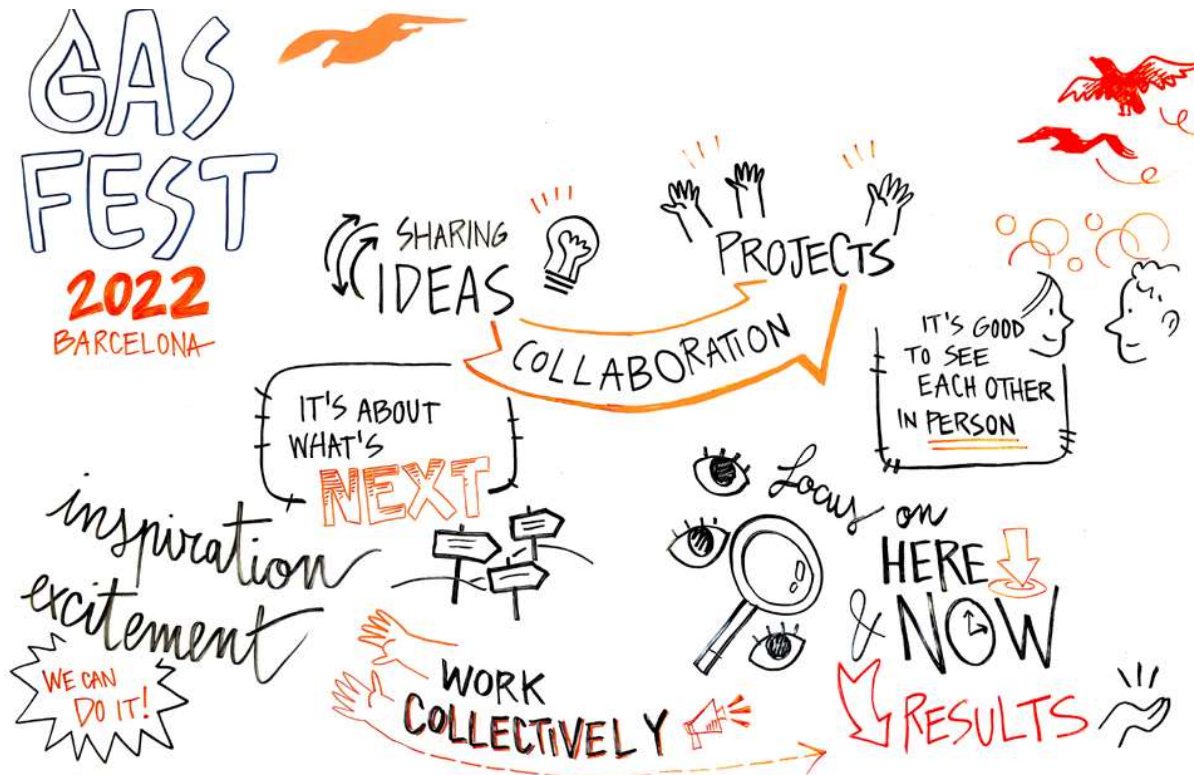 GAS
FEST
2022
BARCELONA
SHARING
IDEAS
COLLABORATION
PROJECTS
IT'S GOOD
TO SEE
EACH OTHER
IN PERSON
IT'S ABOUT
WHAT'S
NEXT
inspiration
excitement
WE CAN
DO IT!
WORK
COLLECTIVELY
Focus on
HERE
& NOW
RESULTS